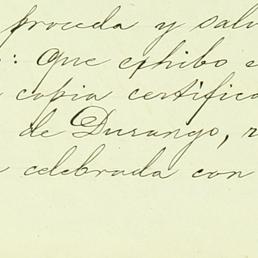 proceda y salv
: que exhibo e
copia certifica
de Durango, r
celebrada con